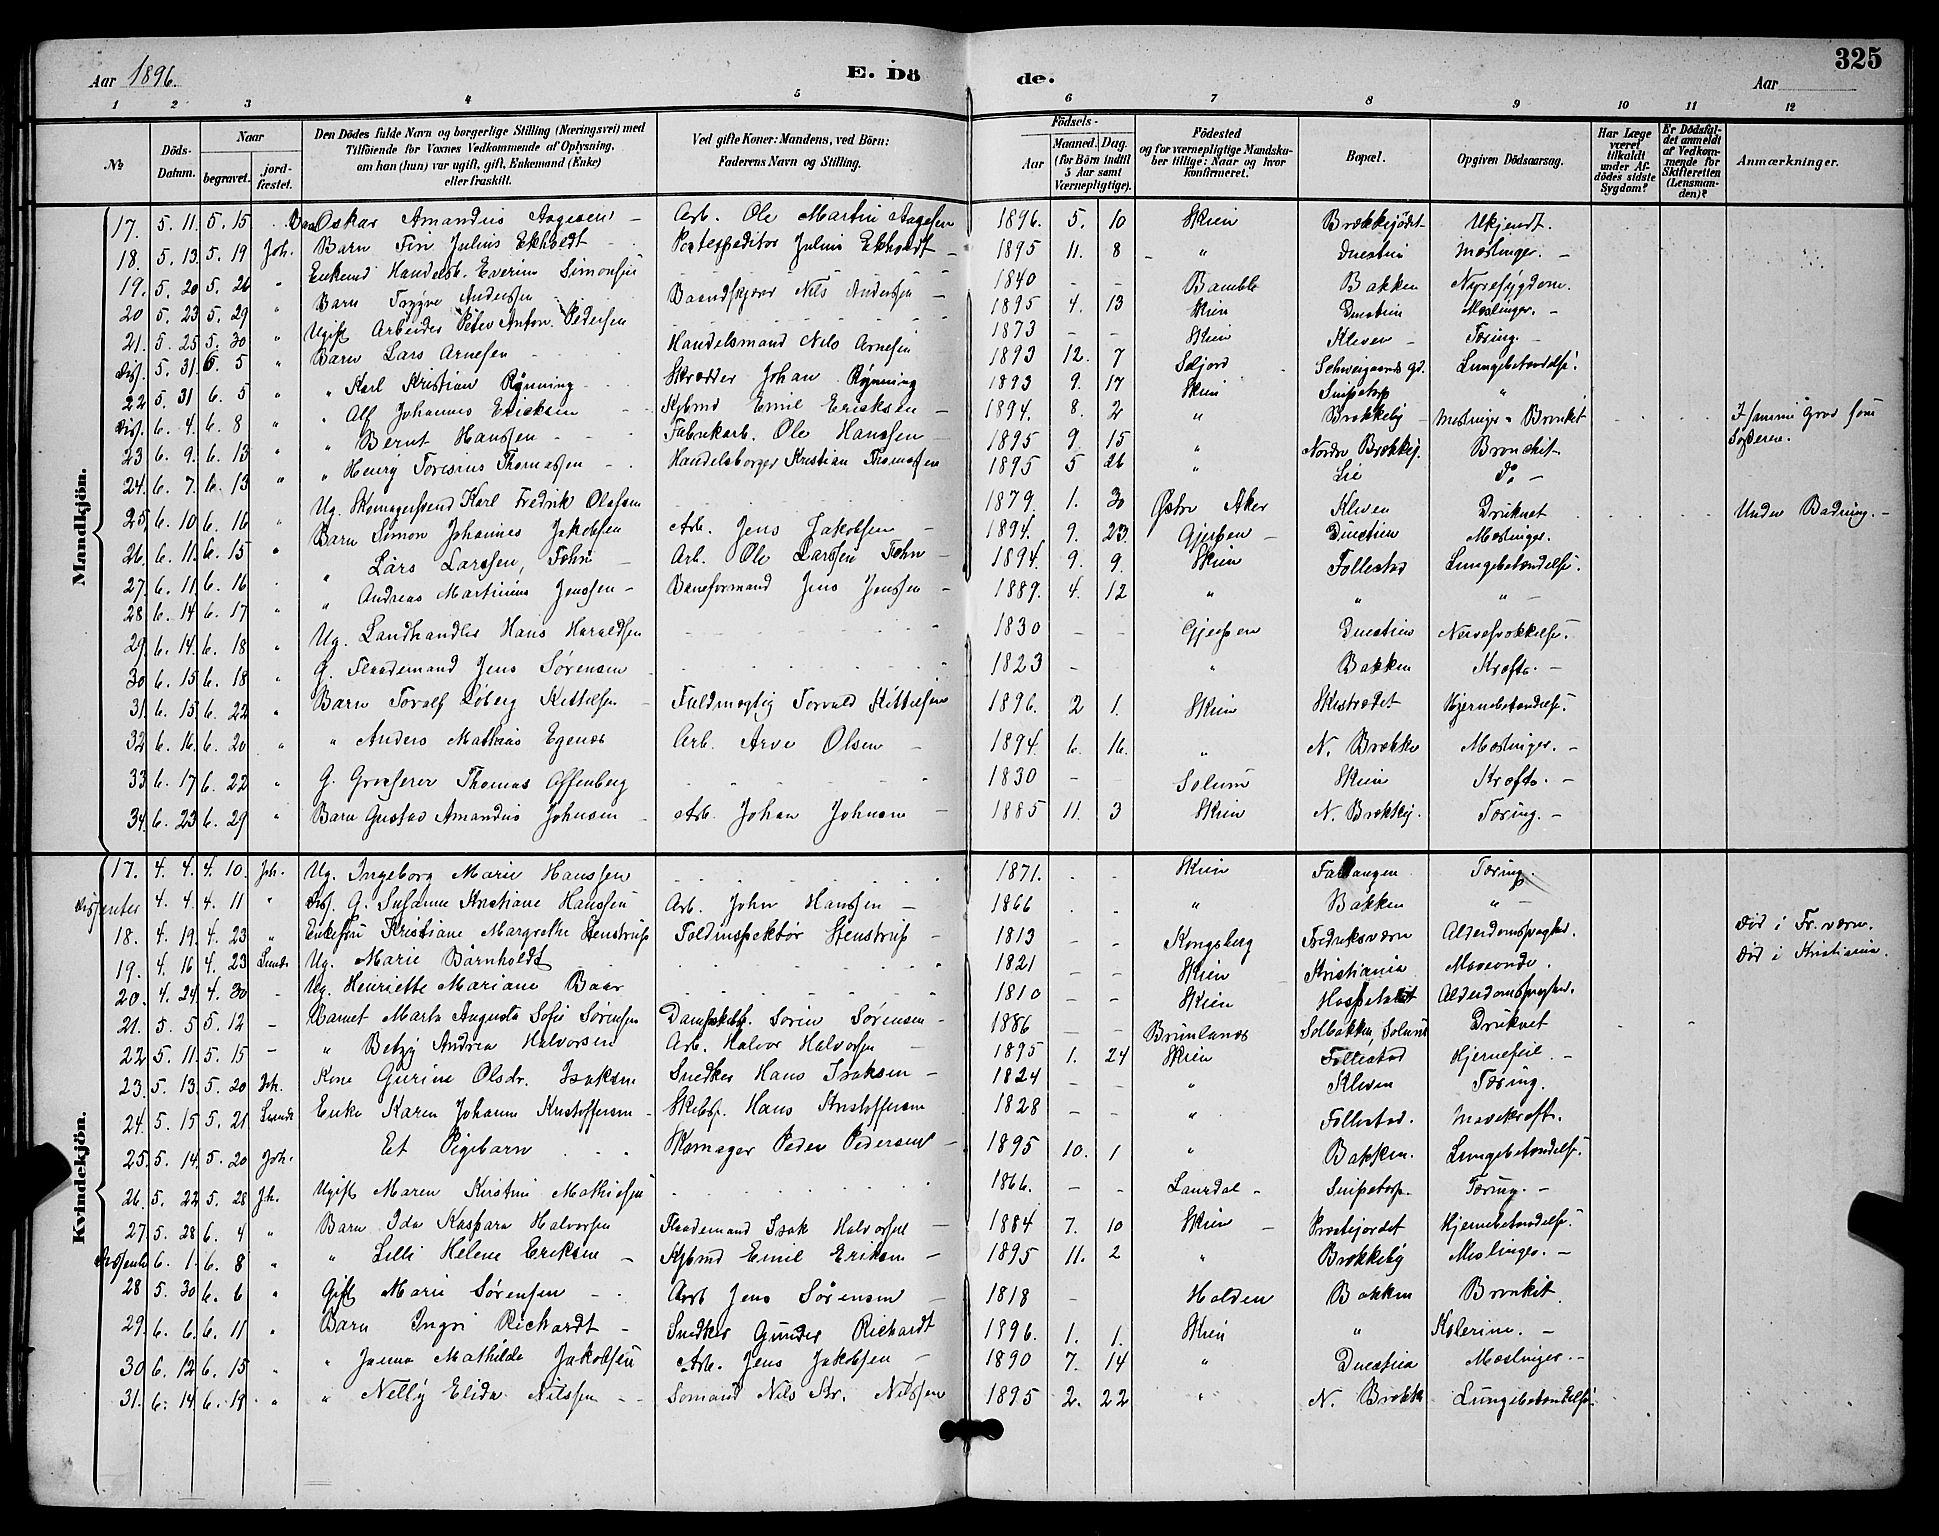 Aar 1896. E. Dö de. Aar 325
1 2 3 4 5 6 7 8 9 10 11 12
No Döds-Datum. Naar begravet. jordfæstet. Den Dödes fulde Navn og borgerlige Stilling (Næringsvei) med Tilföiende for Voxnes Vedkommende af Oplysning, om han (hun) var ugift, gift, Enkemand (Enke) eller fraskilt. Ved gifte Koner: Mandens, ved Börn: Faderens Navn og Stilling. Födsels- Aar Maaned. Dag. (for Börn indtil 5 Aar samt Værnepligtige). Födested og for værnepligtige Mandskaber tillige: Naar og hvor konfirmeret. Bopæl. Opgiven Dödsaarsag. Har Læge været tilkaldt under Afdödes sidste Sygdom? Er Dödsfaldet anmeldt af Vedkommende for Skifteretten (Lensmanden)? Anmærkninger.
Mandkjön.
17. 5. 11. 5. 15 Barn Oskar Amandus Aagesen Arb. Ole Martin Aagesen 1896. 5. 10 Skien Brækkejödet Ukjendt.
18. 5. 13. 5. 19 Joh. Barn Fin Julius Ekholdt Postexpeditör Julius Ekholdt 1895 11. 8 " Duestien Meslinger.
19. 5. 20 5. 26 " Enkemd Handelsb. Everin Simonsen 1840 - - Bamble Bakken Nyresygdom.
20 5. 23 5. 29 " Barn Trygve Anderssen Baandskjærer Nils Anderssen 1895 4. 13 Skien Duestien Meslinger.
21. 5. 25 5. 30 " Ugift Arbeider Peter Anton Pedersen 1873 - - Skien Kleven Tæring.
Diss. 5. 31 6. 5 " Barn Lars Arnesen Handelsmand Nils Arnesen 1893 12. 7 Seljord Schweigaards gd. Lungebetændelse.
22 5. 31 6. 5 " " Karl Kristian Rønning Skrædder Johan Rønning 1893 9. 17 Skien Snipetorp "
Diss. 6. 4. 6. 8 " " Alf Johannes Ericksen Emil Ericksen 1894. 8. 2 " Brækkeby Meslinger Bronkit I samme Grav som Søsteren.
23 6. 9. 6. 13 " " Bernt Hanssen Fabrikarb. Ole Hanssen 1895 9. 15 " Nordre Brækkej. Bronchit
24. 6. 7. 6. 13 " " Henry Toresius Thomassen Handelsborger Kristian Thomassen 1895 5 26 " Lie Do
25. 6. 10 6. 16 " Ug. Skomagersvend Karl Fredrik Olafsen 1879. 1. 30 Østre Aker Kleven Druknet Under Badning.
26. 6. 11. 6. 15 " Barn Simon Johannes Jakobsen Arb. Jens Jakobsen 1894. 9. 23. Gjerpen Duestien Meslinger.
27. 6. 11 6. 16 " Lars Larssen, Føhn Arb. Ole Larssen Føhn 1894. 9. 9. Skien Follestad Lungebetændelse.
28 6. 14 6. 17 " " Andreas Martinius Jenssen Baneformand Jens Jenssen 1889. 4. 12 " " "
29 6. 14. 6. 18 " Ug. Landhandler Hans Haraldsen 1830 - - Gjerpen Duestien Nervesvækkelse.
30 6. 15 6. 18 " G. Flaademand Jens Sørensen 1823 - " Bakken Kræft.
31. 6. 15 6. 22 " Barn Toralf Løberg Kittelsen Fuldmægtig Torvald Kittelsen 1896. 2 1. Skien Skistrædet Hjernebetændelse.
32 6. 16. 6. 20 " " Anders Mathias Egenæs Arb. Arve Olsen 1894. 6. 16. " N. Brække Meslinger.
33. 6. 17 6. 22 " G. Grosserer Thomas Offenberg 1830 - - Solum Skien Kræft.
34. 6. 23 6. 29 " Barn Gustav Amandus Johnsen Arb. Johan Johnsen 1885 11. 3 Skien N. Brækkej. Tæring.
Kvindekjön.
17. 4. 4. 4. 10. Joh. Ug. Ingeborg Marie Hanssen 1871. - - Skien Falkangen Tæring.
Dissenter 4. 4. 4. 11 " Diss. G. Susanne Kristiane Hanssen Arb. John Hanssen 1866 - - " Bakken "
18. 4. 19. 4. 23 " Enkefru Kristiane Margrethe Stenstrup Toldinspektør Stenstrup 1813 - - Kongsberg Fredriksværn Alderdomssvaghed. Død i Fr.værn.
19. 4. 16 4. 23 Lunde Ug. Marie Bårnholdt 1821 - - Skien Kristiania Maveonde. Død i Kristiania.
20. 4. 24 4. 30 - Ug. Henriette Mariane Baar 1810 - - Skien Hospitalet Alderdomssvaghed.
21. 5. 5 5. 12 - Barnet Marta Augusta Sofie Sørensen Sørin Sørensen 1886 - - Brunlanes Solbakken, Solum Druknet
22 5. 11. 5. 15 - " Betzy Andrea Halvorsen Arb. Halvor Halvorsen 1895 1. 24 Skien Follestad Hjernefeil.
23. 5. 13. 5. 20 Joh. Kone Gurine Olsdr. Isaksen Snedker Hans Isaksen 1824 - - " Kleven Tæring.
24. 5. 15 5. 21 Lunde Enke Karen Johanne Kristoffersen Skibsf. Hans Kristoffersen 1828 - - " Follestad. Mavekræft.
25. 5. 14. 5. 20 Joh. Et Pigebarn Skomager Peder Pedersen 1895 10. 1 " Bakken. Lungebetændelse.
26. 5. 22 5. 28 Jh. Ugift Maren Kirstine Mathisen 1866. - - Laurdal Snipetorp. Tæring.
27. 5. 28 6. 4 " Barn Ida Kaspara Halvorsen Flaademand Isak Halvorsen 1884 7. 10 Skien Prestejordet Hjernebetændelse.
Dissenter 6. 1. 6. 8 " " Lilli Helene Eriksen Emil Eriksen 1895 11. 2 " Brækkeby Meslinger.
28 5. 30 6. 6 " Gift Marie Sørensen Arb Jens Sørensen 1818 - Halden Bakken Bronkit.
29. 6. 6. 6. 11 " Barn Ingri Richardt Snedker Gunder Richardt 1896. 1. 1. Skien " Kolerine.
30 6. 12 6. 15 " " Janna Mathilde Jakobsen Arb. Jens Jakobsen 1890 7. 14 " Duestien Meslinger.
31. 6. 14 6. 18 " " Nelly Elida Nilssen Sømand Nils Nilssen 1895 2. 22 " N. Brække Lungebetændelse.